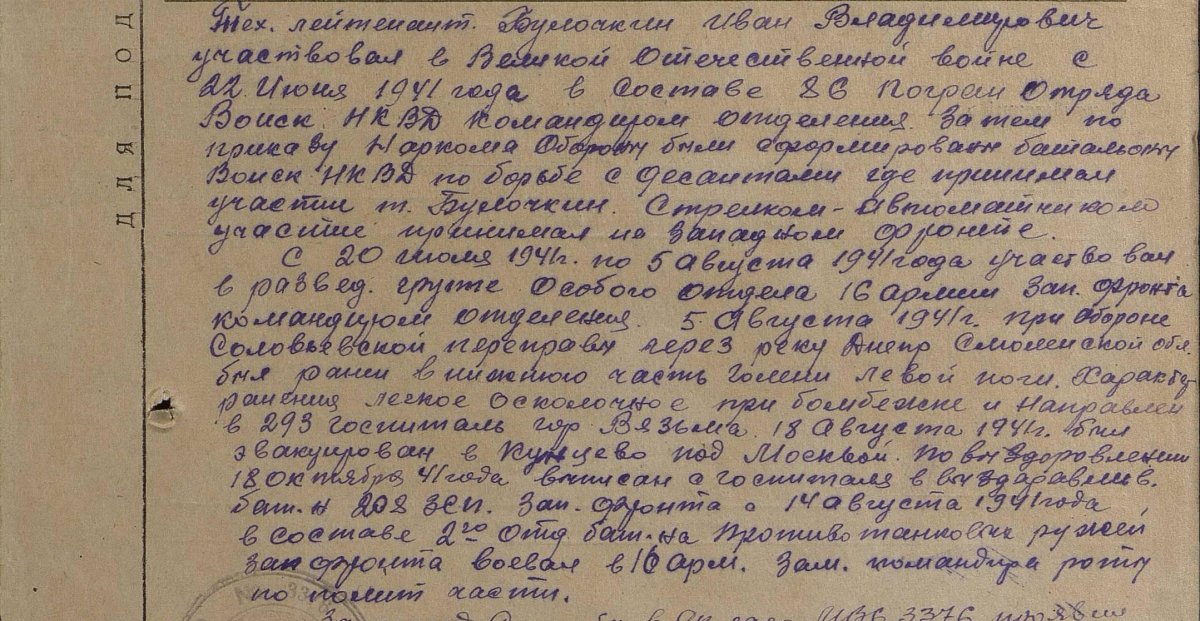 Тех. лейтенант. Булочкин Иван Владимирович
участвовал в Великой Отечественной войне с
22 Июня 1941 года в составе 86 Погран Отряда
Войск НКВД командиром отделения. Затем по
приказу Наркома Обороны были сформированы батальоны
Войск НКВД по борьбе с десантами где принимал
участии т. Булочкин. Стрелком-автоматчиком
участие принимал на Западном фронте.
С 20 июля 1941г. по 5 августа 1941 года участвовал
в развед. группе Особого отдела 16 армии Зап. фронта
командиром отделения. 5 Августа 1941г. при обороне
Соловьевской переправы через реку Днепр Смоленской обл.
был ранен в нижнюю часть голени левой ноги. Характер
ранения легкое осколочное при бомбежке и направлен
в 293 госпиталь гор. Вязьма. 18 Августа 1941г. был
эвакуирован в Кунцево под Москвой. По выздоровлении
18 октября 41 года выписан с госпиталя в выздаравлив.
бат.н 208 ЗСП. Зап. фронта с 14 августа 1941 года
в составе 2го Отд. бат-на противотанковых ружей
Зап фронта воевал в 16 арм. Зам. командира роты
по полит части.
ДЛЯ ПОД